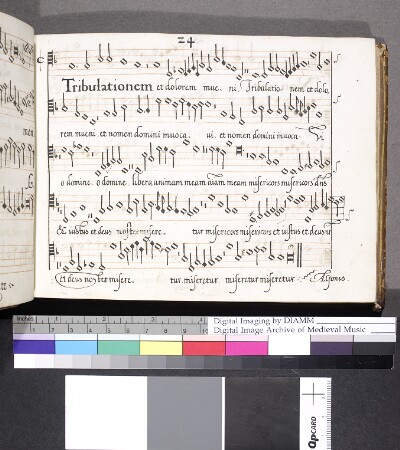 24
Tribulationem et dolorem inue. ni. Tribulatio nem et dolo.
rem inueni et nomen domini inuoca. ui. et nomen domini inuoca
o domine. o domine libera animam meam aiam meam misericors misericors dñs
Et iustus et deus noster misere. tur misericors misericors et iustus et deus n
Et deus noster misere. tur. miseretur. miseretur miseretur
inches 1 2 3 4
Digital Imaging by DIAMM
Digital Image Archive of Medieval Music
QPCARD